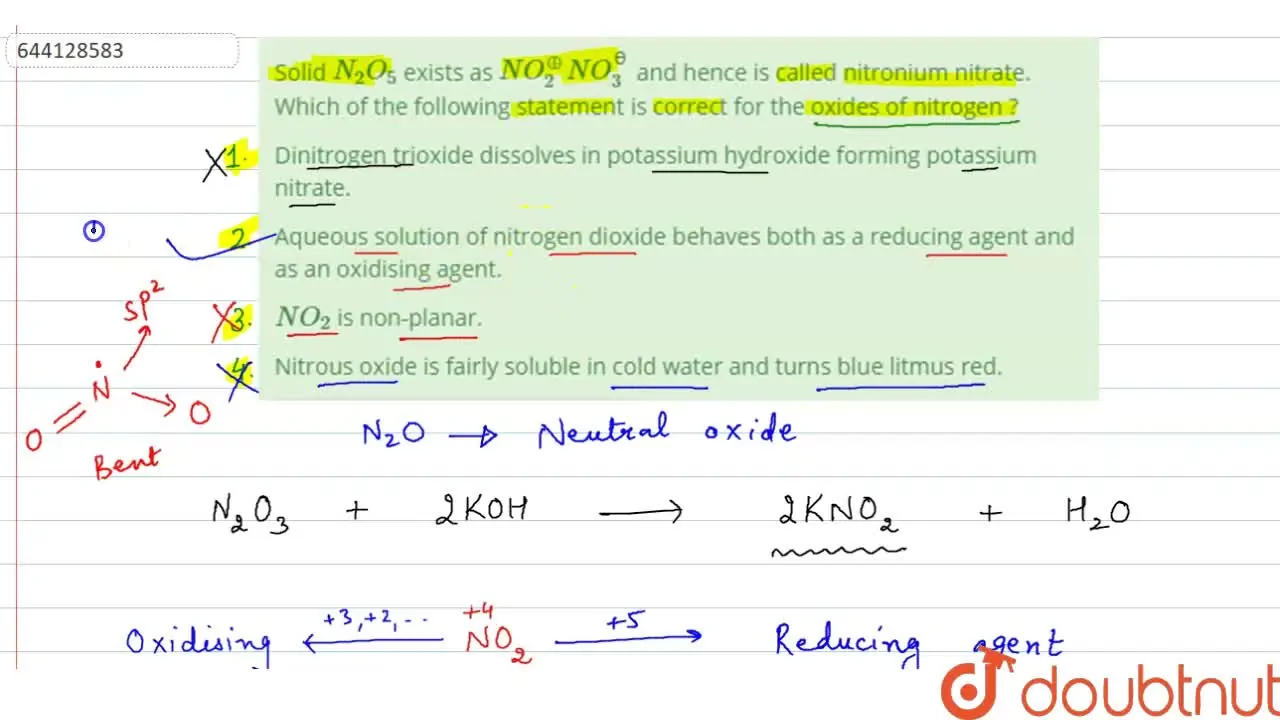 644128583
Solid N₂O₅ exists as NO₂⊕ NO₃⊖ and hence is called nitronium nitrate.
Which of the following statement is correct for the oxides of nitrogen ?
1. Dinitrogen trioxide dissolves in potassium hydroxide forming potassium
nitrate.
2 Aqueous solution of nitrogen dioxide behaves both as a reducing agent and
as an oxidising agent.
3. NO₂ is non-planar.
4. Nitrous oxide is fairly soluble in cold water and turns blue litmus red.
sp²
N
O
O
Bent
N₂O → Neutral oxide
N₂O₃ + 2KOH → 2KNO₂ + H₂O
+3,+2,.. +4 +5
Oxidising ← NO₂ → Reducing agent
doubtnut